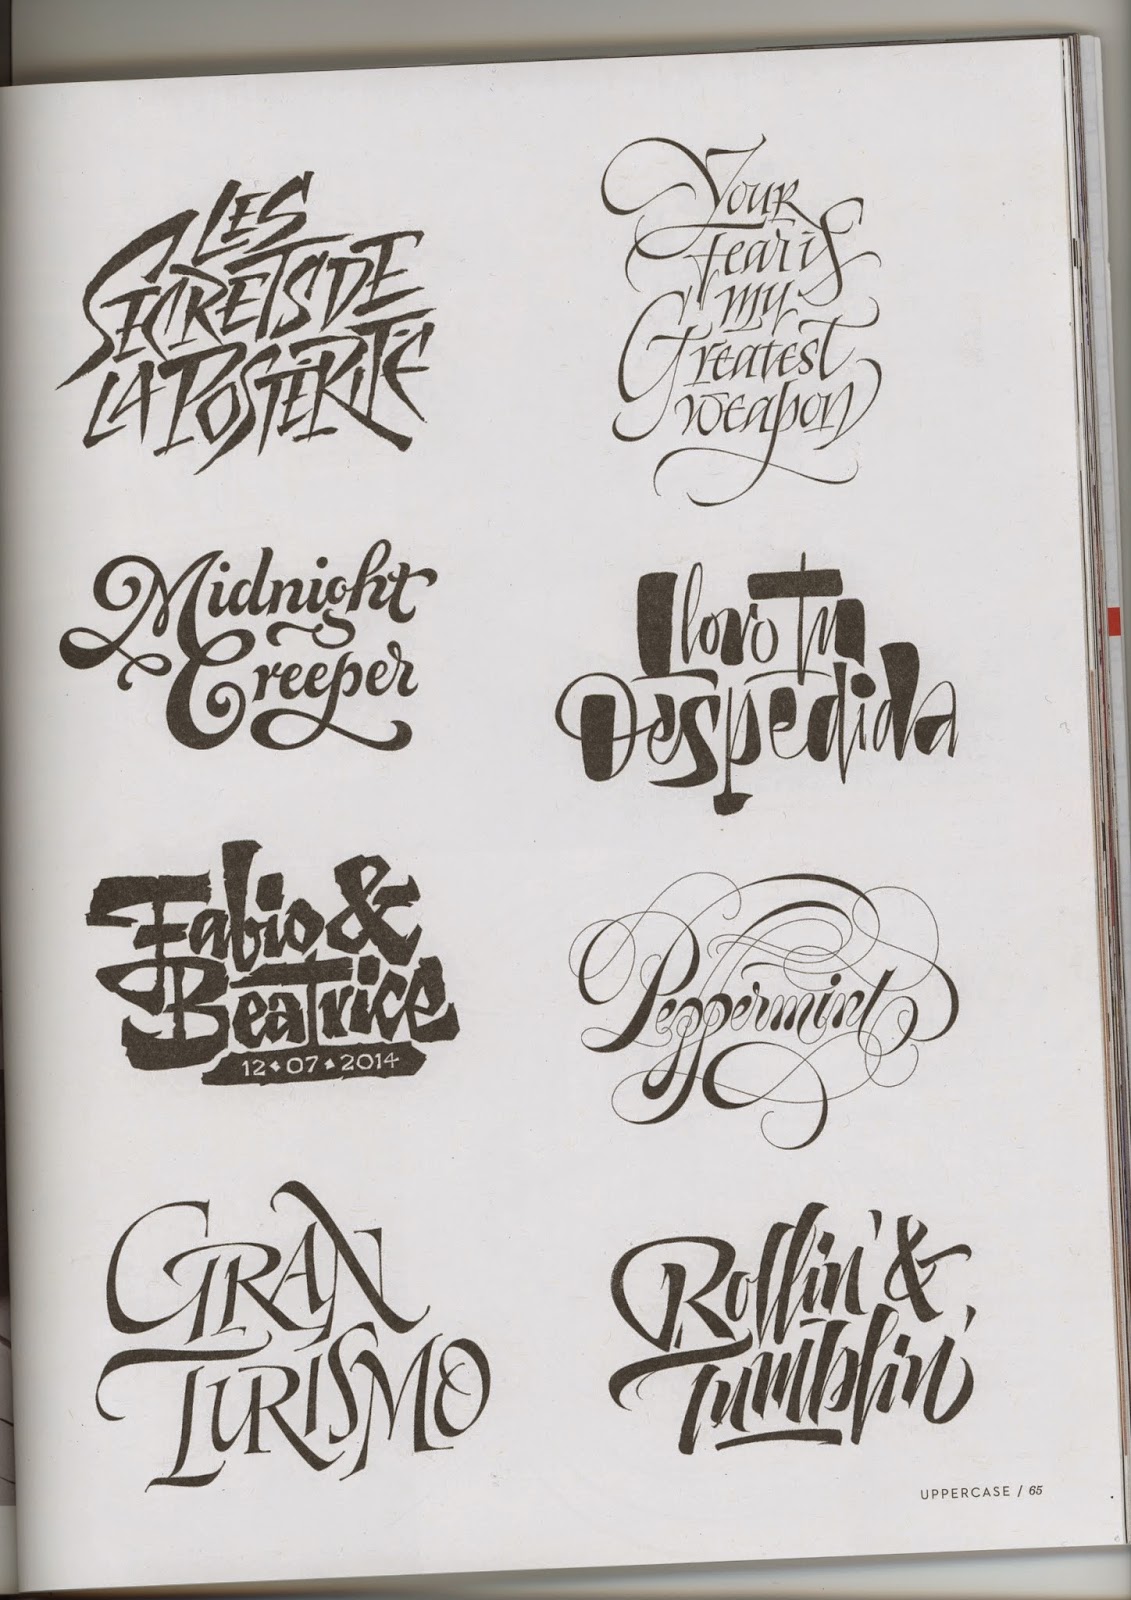 LES
SECRETS DE
LA POSTÉRITÉ
Your
fear is
my
Greatest
weapon
Midnight
Creeper
Lloro Tu
Despedida
Fabio &
Beatrice
12 • 07 • 2014
Peppermint
GRAN
TURISMO
Rollin' &
Tumblin'
UPPERCASE / 65